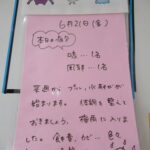 6月21日(金)
本日のお休み
咳…1名
風邪…1名
来週から プール、水遊びが
始まります。 体調を整えて
おきましょう。 梅雨に入りま
した。 食中毒、カビ…